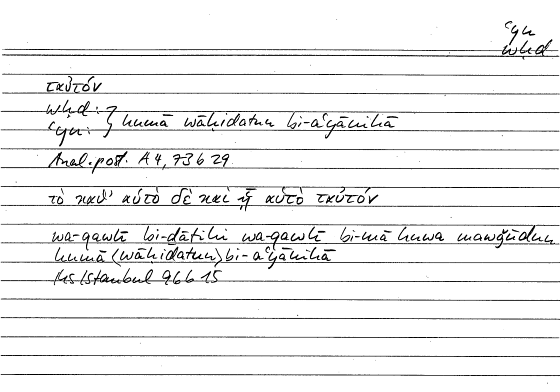 ʿyn
wḥd
ταὐτόν
wḥd: }
ʿyn: } humā wāḥidatun bi-aʿyānihā
Anal. post. A 4, 73 b 29
τὸ καθ' αὑτὸ δὲ καὶ ᾗ αὐτὸ ταὐτόν
wa-qawlī bi-ḏātihi wa-qawlī bi-mā huwa mawǧūdun
humā ⟨wāḥidatun⟩ bi-aʿyānihā
Ms Istanbul 96 b 15